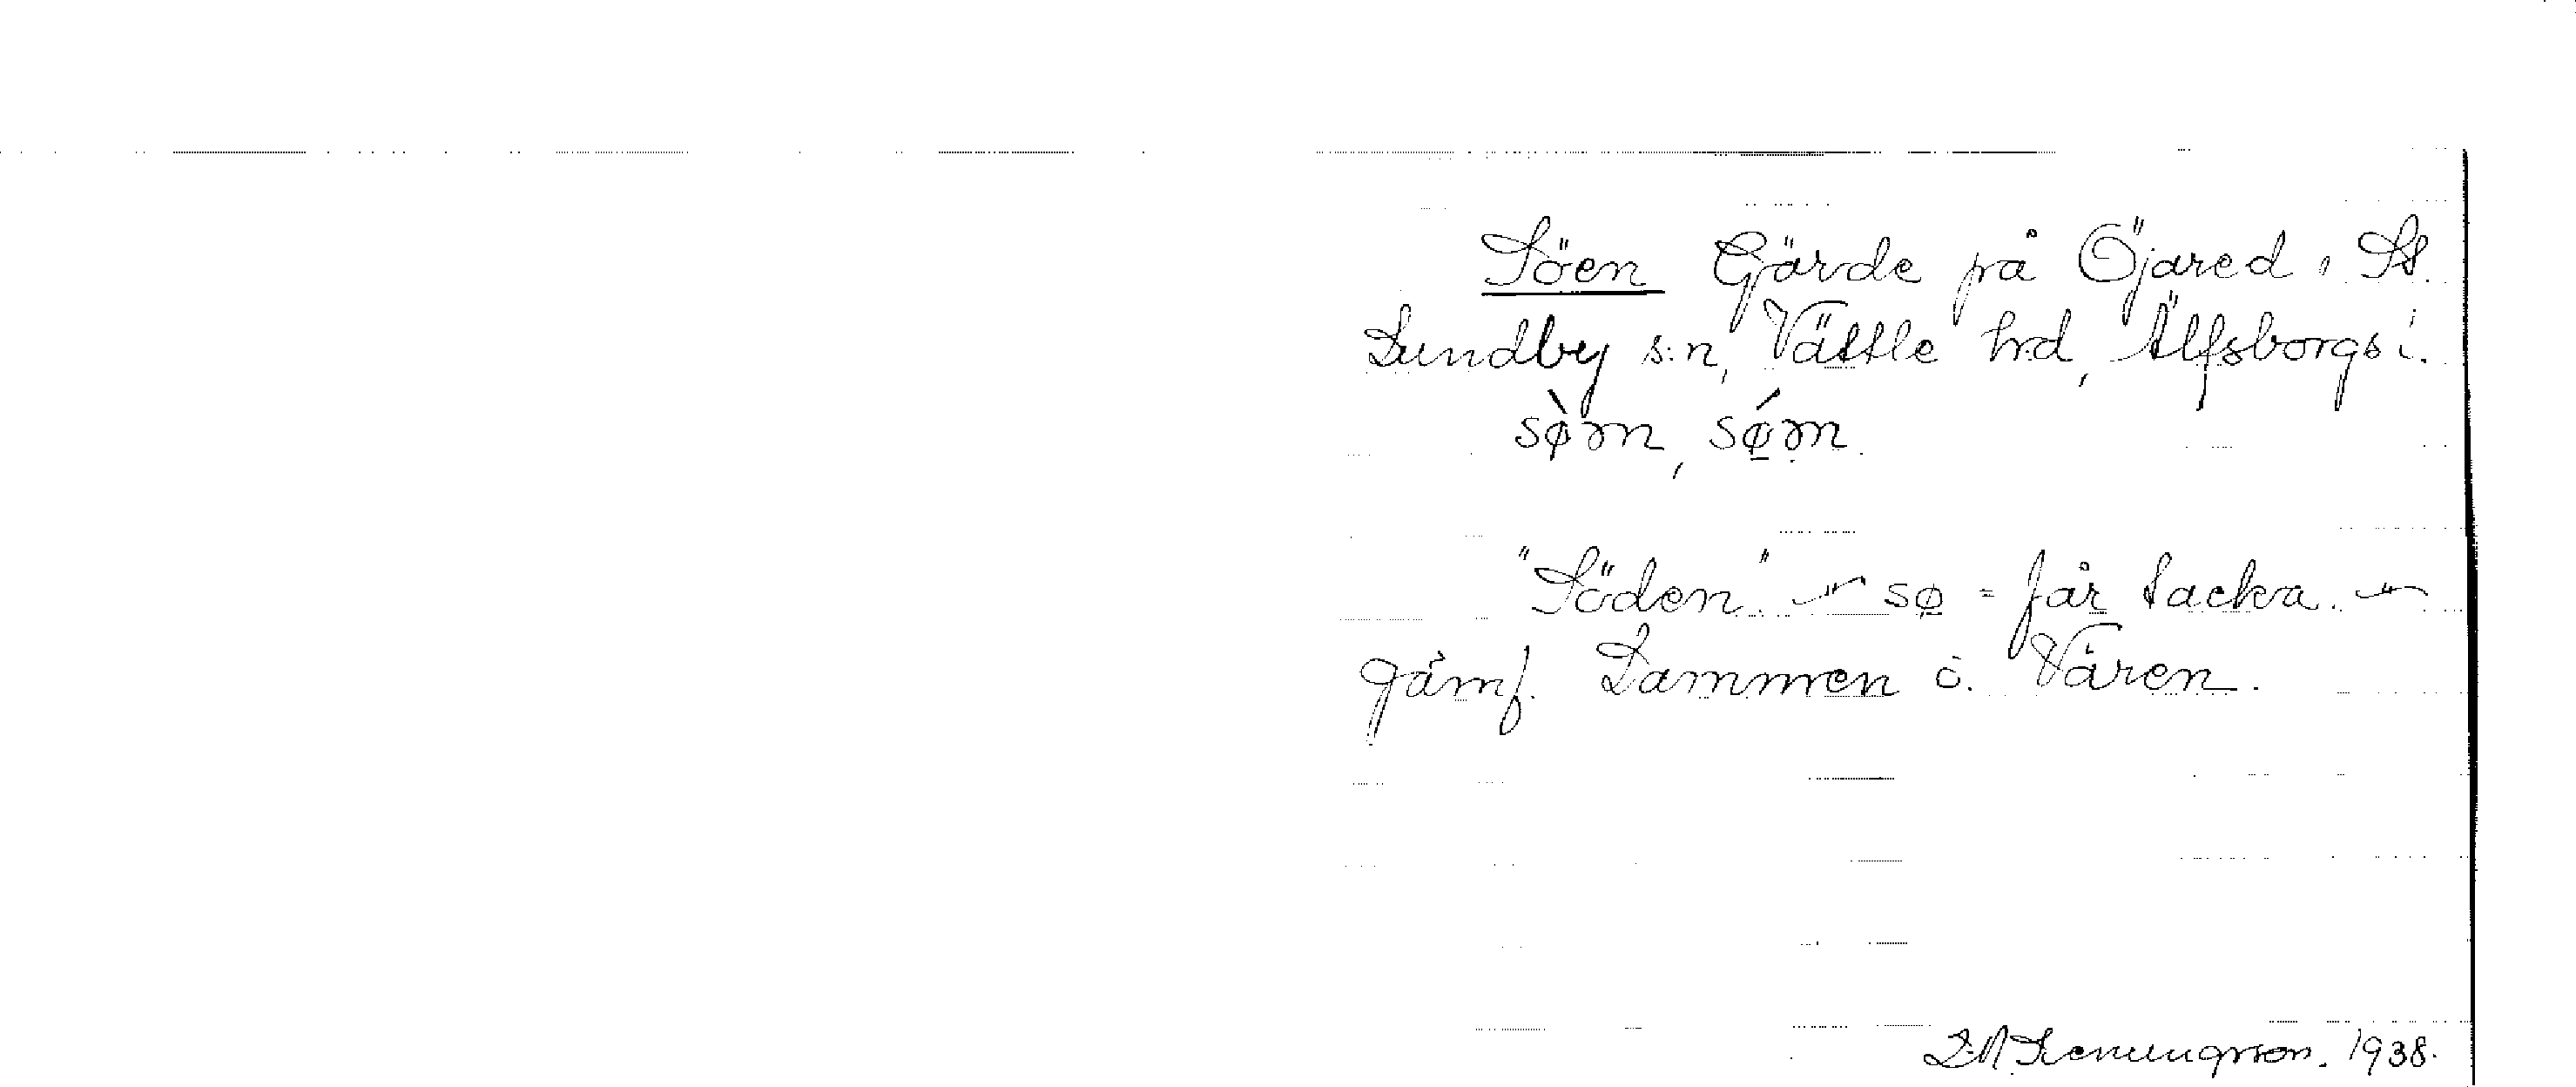 Söen Gärde på Öjared, St.
Lundby s:n, Vättle h:d, Älfsborgs l.
sø̀ən, sǿən.
"Söden" – sø = får tacka. –
Jämf. Lammen o. Våren.
1938.